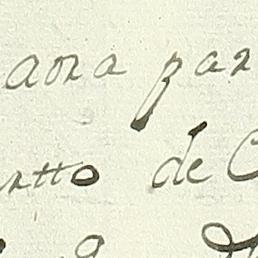 aora par
rtto de C